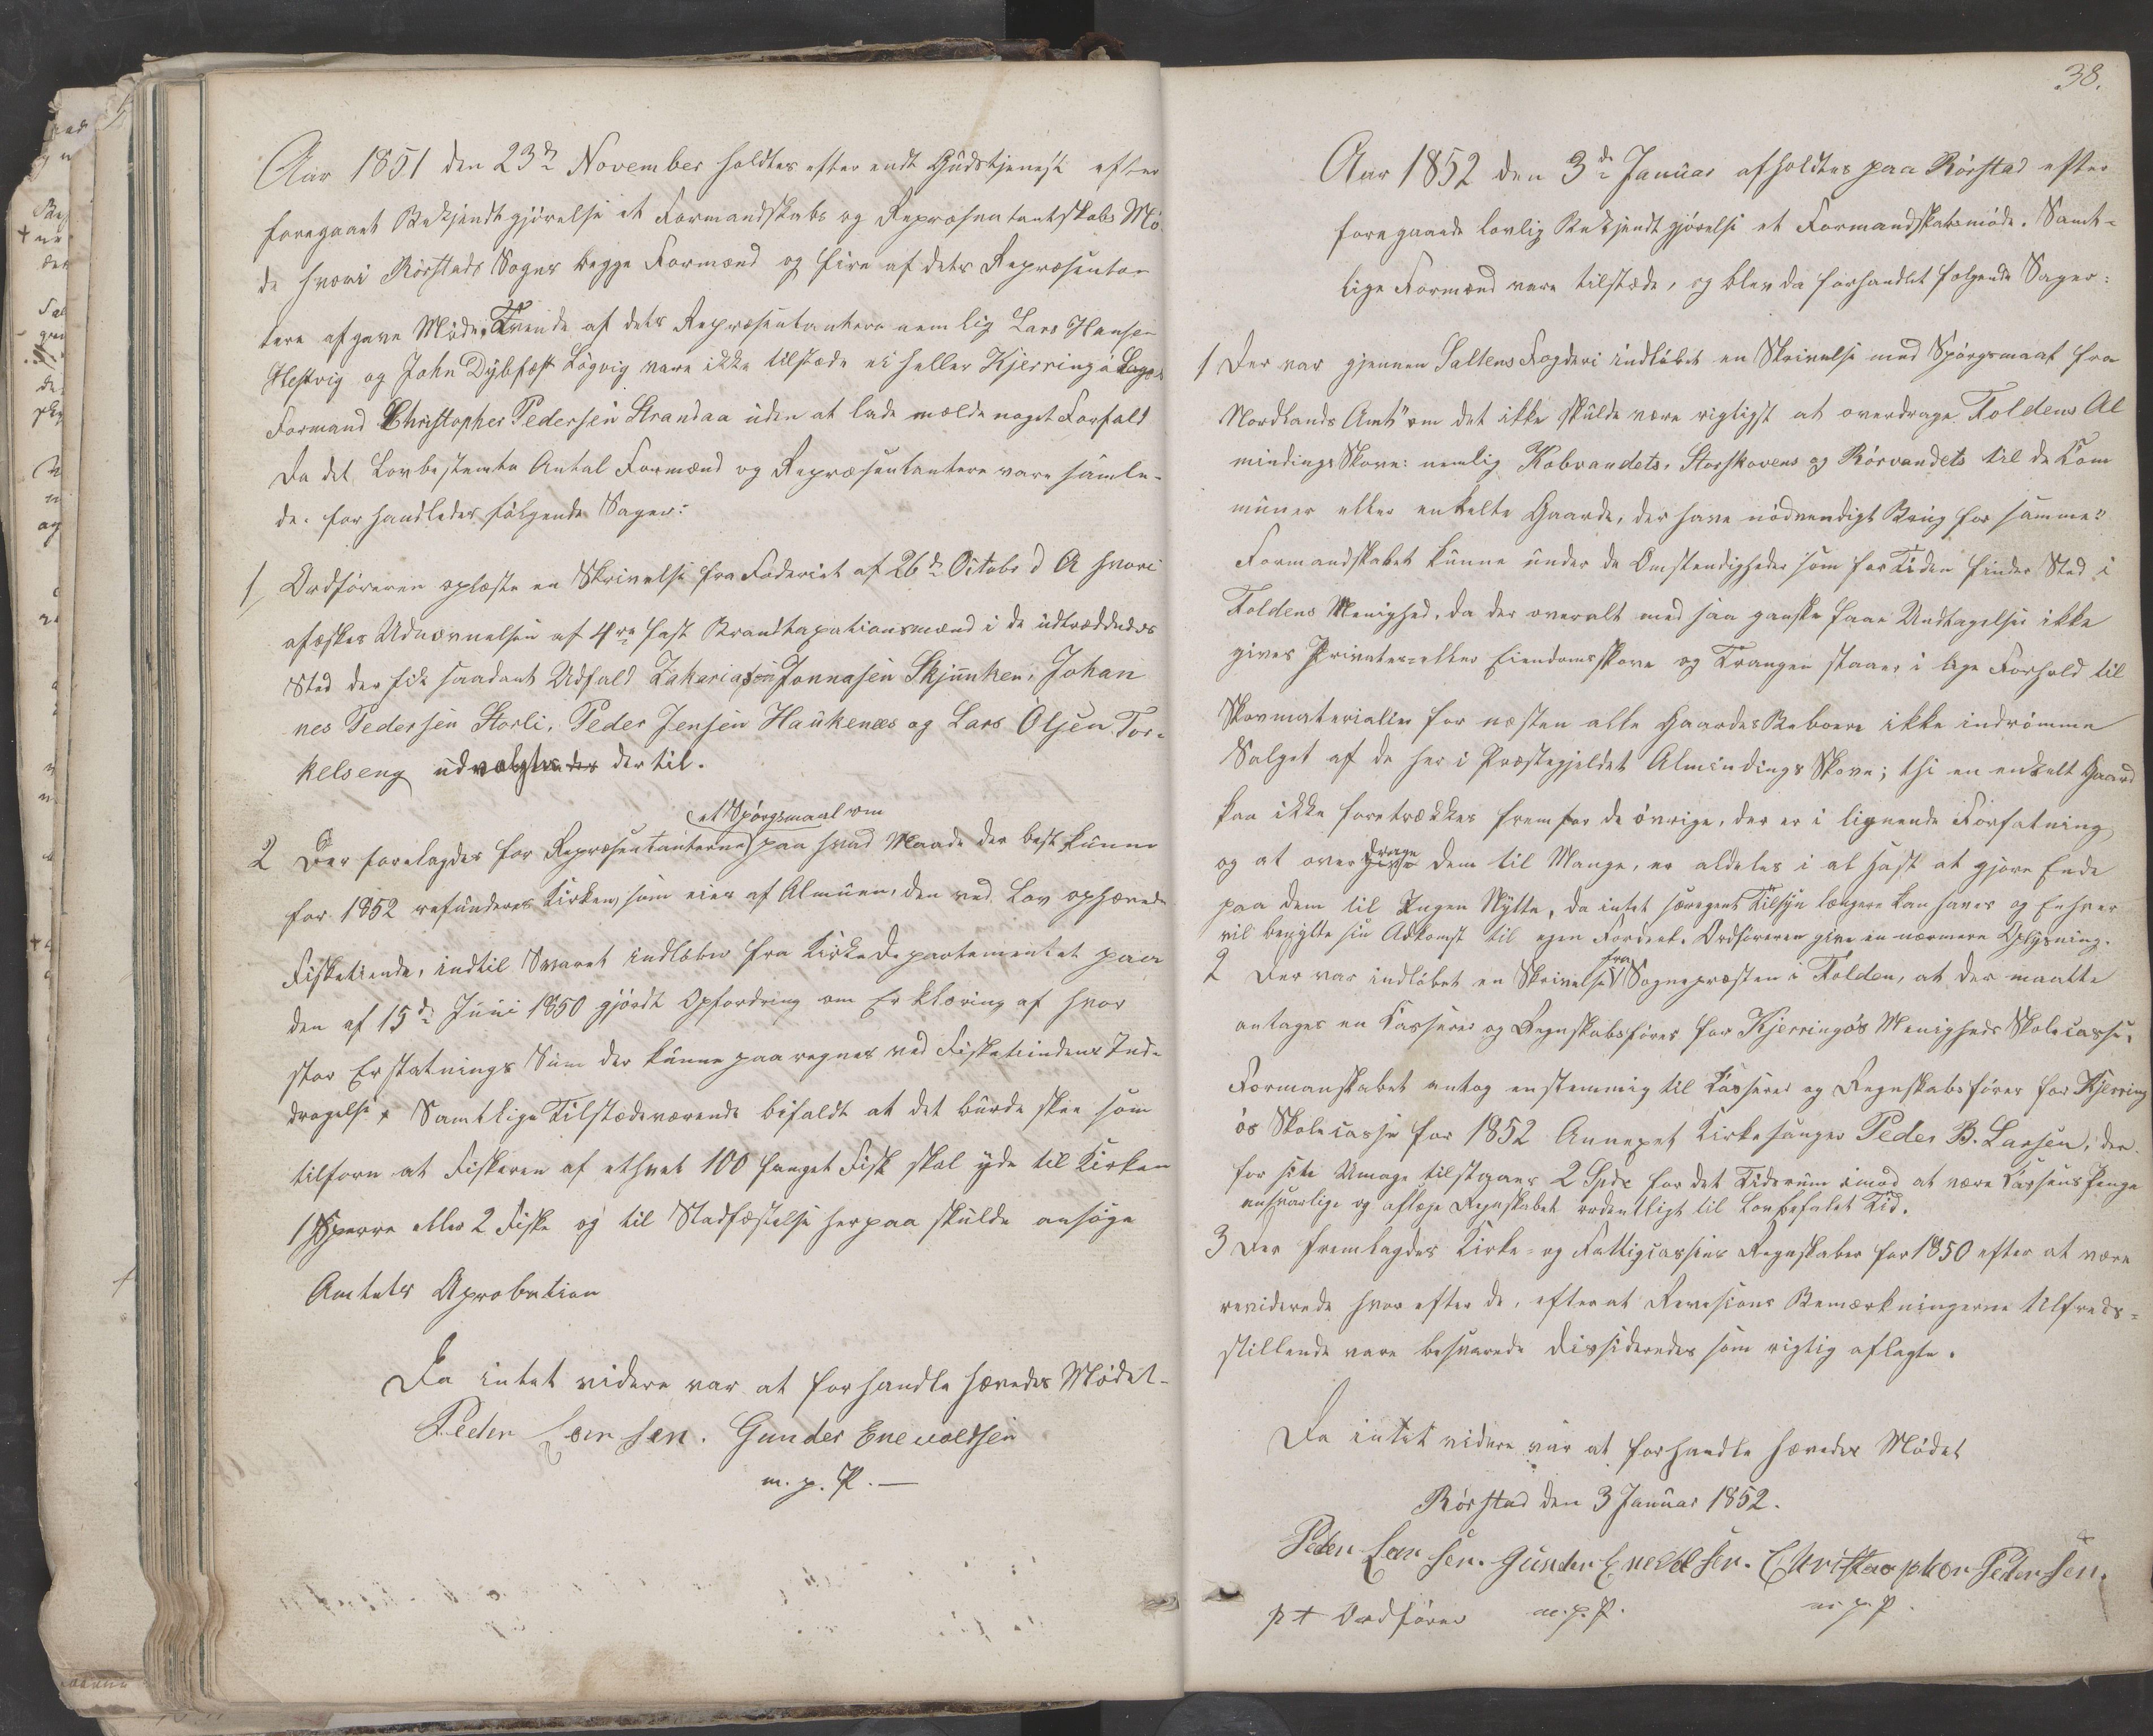 Aar 1851 den 23de November holdtes efter endt Gudstjeneste efter
foregaaet Bekjendtgjørelse et Formandskabs og Repræsentantskabs Mø-
de hvori Rørstads Sogns begge Formænd og fire af dets Repræsentan
tere afgave Møde. Tvende af dets Repræsentantere nemlig Lars Hansen
Hestvig og John Dybfest Løgvig vare ikke tilstæde ei heller Kjerringø Sogns
Formand Christopher Pedersen Strandaa uden at lade melde noget Forfald
Da det Lovbestemte Antal Formænd og Repræsentantere vare samle-
de. forhandledes følgende Sager:
1/ Ordføreren oplæste en Skrivelse fra Foderiet af 26de Octobr d A hvori
afæskes Udnævnelsen af 4re fast Brandtaxationsmænd i de udtræddedes
Sted der fik saadant Udfald Zakarias Jonnasen Skjunken, Johan
nes Pedersen Storli, Peder Jensen Haukenæs og Lars Olsen Tor-
kelseng udvalgtes dertil.
et Spørgsmaal om
2 Der forelagdes for Repræsentanterne paa hvad Maade der best kunne
for 1852 refunderes Kirken, som eies af Almuen, den ved Lov ophævede
Fisketiende, indtil Svaret indløber fra Kirke Departementet paa
den af 15de Juni 1850 gjordt Opfordring om Erklæring af hvor
stor Erstatnings Sum der kunne paaregnes ved Fisketiendens Ind-
dragelse. Samtlige Tilstædeværende bifaldt at det burde skee som
tilforn at Fiskeren af ethvert 100 fanget Fisk skal yde til Kirken
1 Sperre eller 2 Fiske og til Stadfæstelse herpaa skulde ansøge
Amtets Aprobation
Da intet videre var at forhandle hævedes Mødet-
Peder Larsen. Gunder Enevoldsen
m. p. P. —
38.
Aar 1852 den 3de Januar afholdtes paa Rørstad efter
foregaaende lovlig Bekjendtgjørelse et Formandskabsmøde. Samt-
lige Formænd vare tilstæde, og blev da forhandlet følgende Sager:
1 Der var gjennem Saltens Fogderi indløbet en Skrivelse med Spørgsmaal fra
Nordlands Amt "om det ikke skulde være rigtigst at overdrage Foldens Al
mindings Skove: nemlig Kobvandets, Storskovens og Rørvandets til de Com
muner eller enkelte Gaarde, der have nødvendigt Brug for samme."
Formandskabet kunne under de Omstendigheder som for Tiden finder Sted i
Foldens Menighed, da der overalt med saa ganske faae Undtagelser ikke
gives Privates- eller Eiendomsskove og Trangen staaer i lige Forhold til
Skovmaterialier for næsten alle Gaardes Beboere ikke indrømme
Salget af de her i Præstegjeldet Almindings Skove; thi en enkelt Gaard
kan ikke foretrækkes fremfor de øvrige, der er i lignende Forfatning,
drage
og at over give dem til Mange, er aldeles i al Hast at gjøre Ende
paa dem til Ingen Nytte, da intet særegent Tilsyn længere kan haves og Enhver
vil benytte sin Adkomst til egen Fordeel. Ordføreren give en nærmere Oplysning.
fra
2 Der var indløbet en Skrivelse Sognepræsten i Folden, at der maatte
antages en Casserer og Regnskabsfører for Kjerringøs Menigheds Skolecasse.
Formanskabet antog enstemmig til Casserer og Regnskabsfører for Kjerring
øs Skolecasse for 1852 Annexet Kirkesanger Peder B. Larsen, der
for sin Umage tilstaaes 2 Spd. for det Tidsrum imod at være Cassens Penge
ansvarlige og aflægge Regnskabet ordentligt til Lovbefalet Tid.
3 Der fremlagdes Kirke- og Fattigcassens Regnskaber for 1850 efter at være
reviderede hvorefter de, efter at Revisions Bemærkningerne tilfreds-
stillende vare besvarede dessideredes som rigtig aflagte.
Da intet videre var at forhandle hævedes Mødet
Rørstad den 3 Januar 1852.
Peder Larsen. Gunder Eneveldsen. Christoopher Pedersen.
pt Ordfører m. p. P. m. p. P.